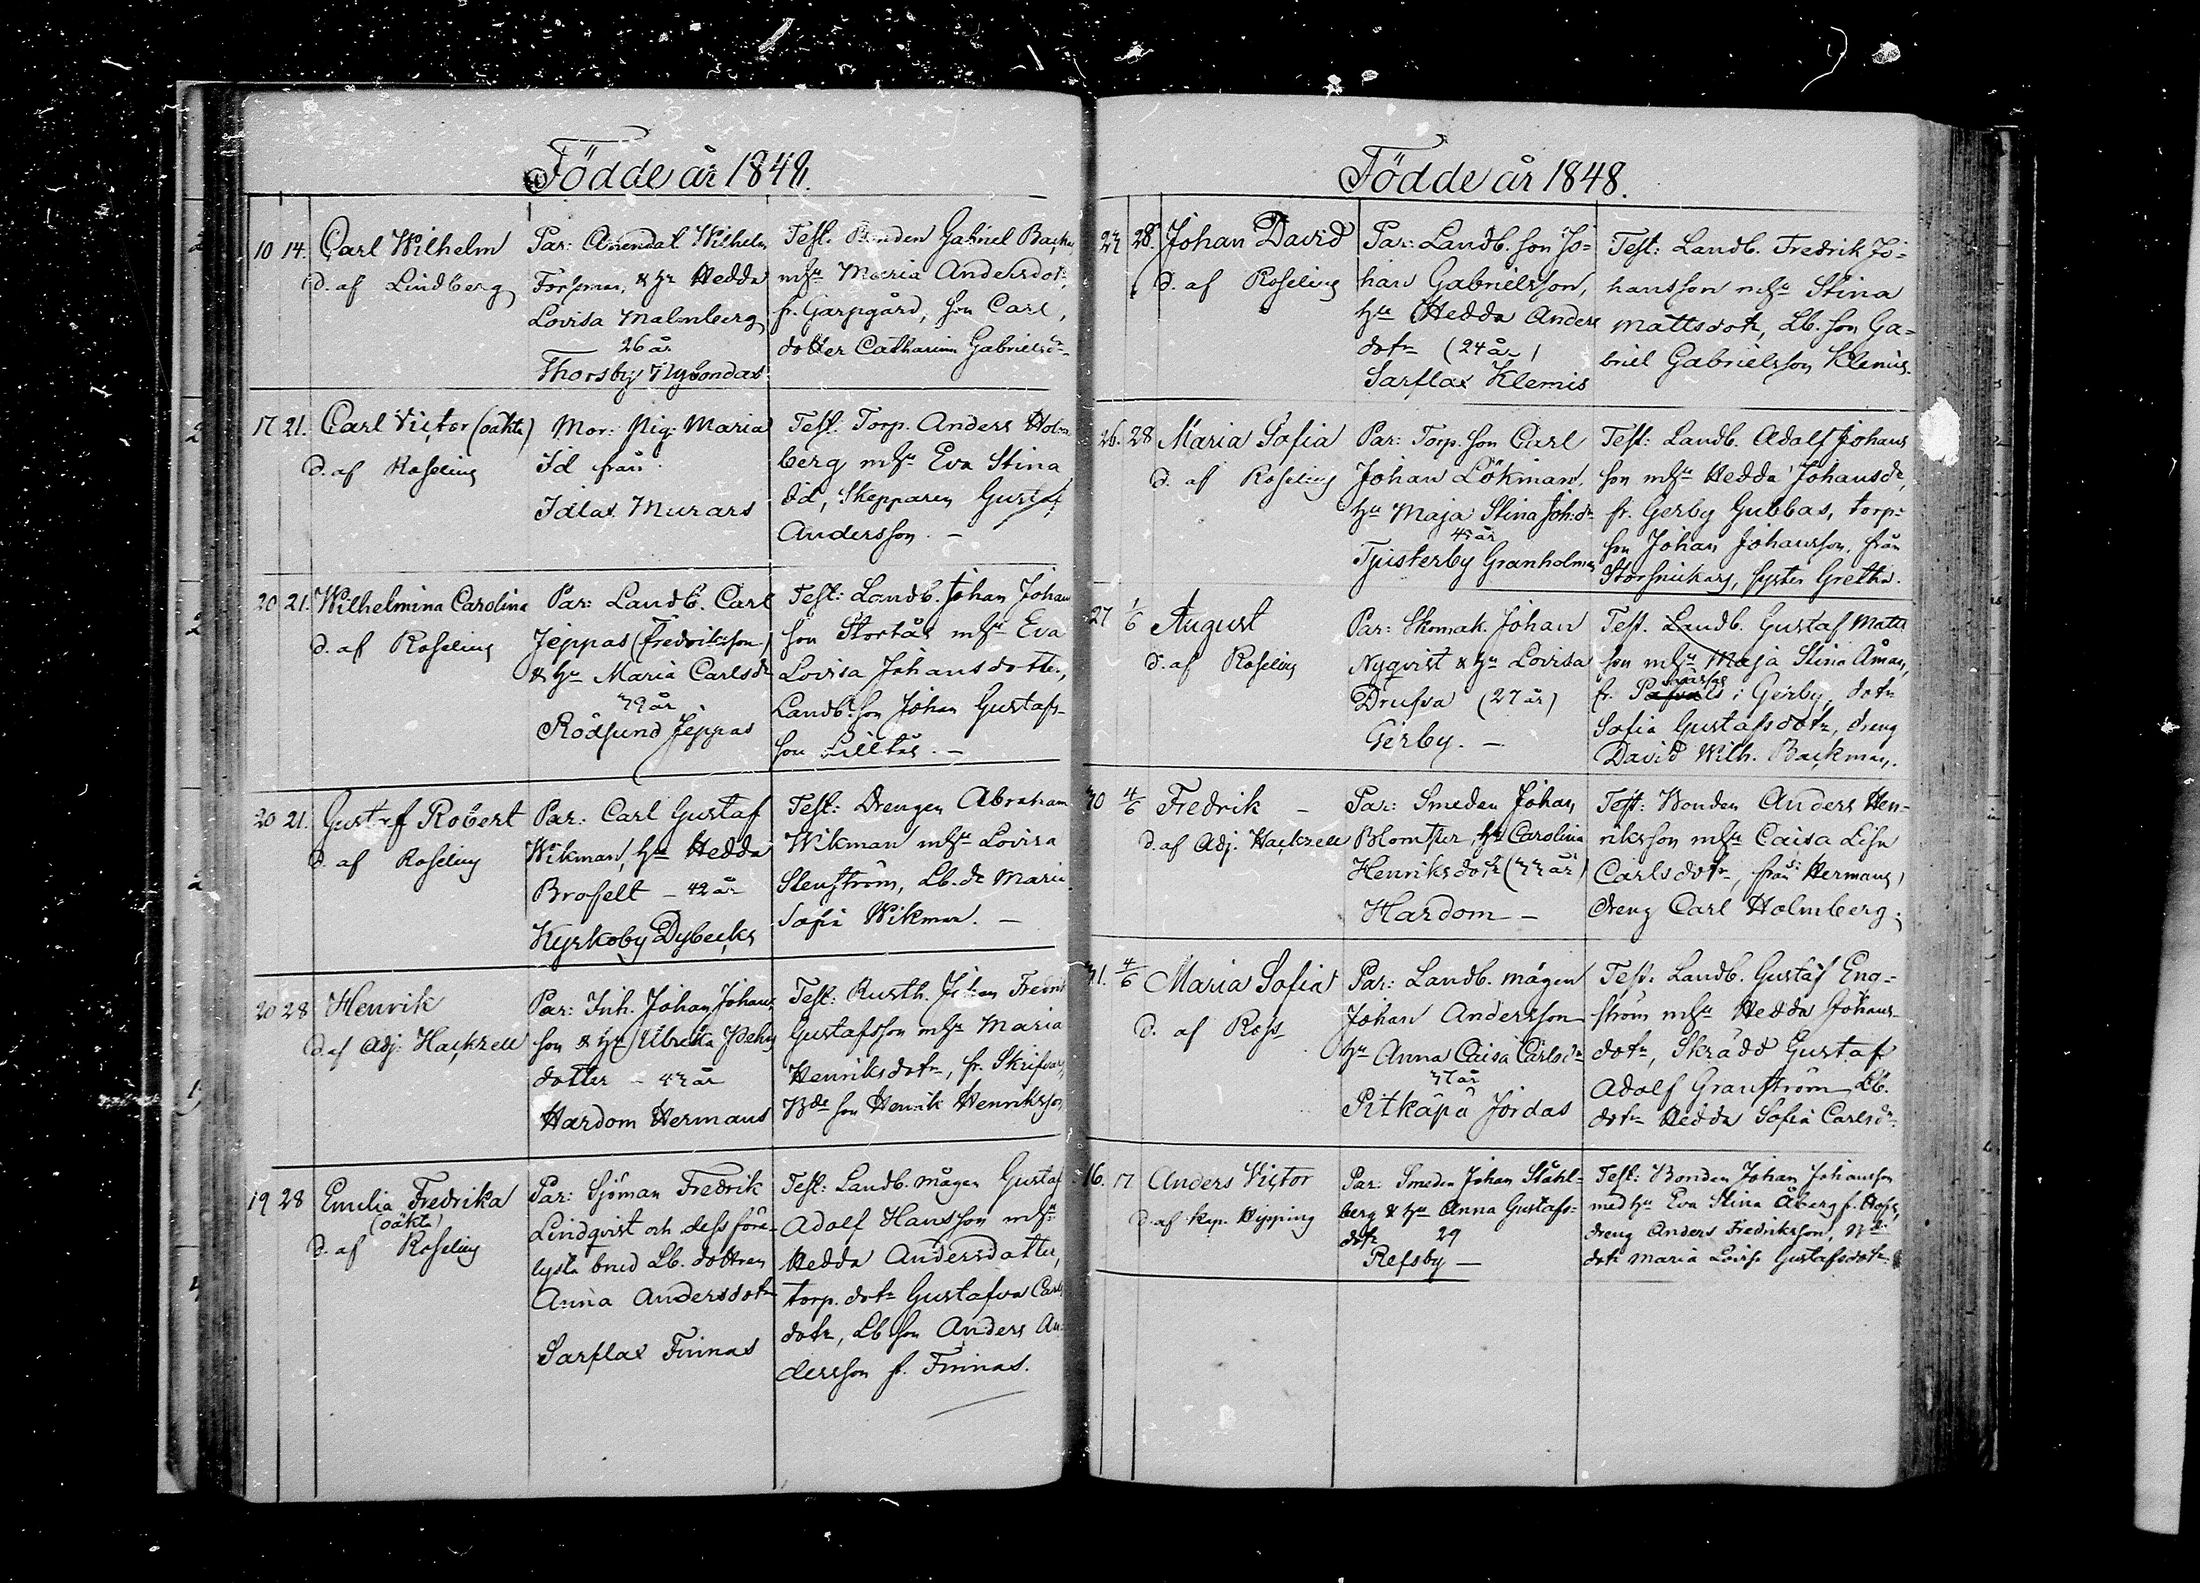 Födde år 1848.
10 14. Carl Wilhelm
d. af Lindberg
Par: Arrendat. Wilhelm
Forsman, & hu Hedda
Lovisa Malmberg
26 år
Thorsby Nybondas
Test: Bonden Gabriel Backm
m hu Maria Andersdotr
fr. Garpgård, son Carl,
dotter Catharina Gabrielsdr
17 21. Carl Victor (oäkta)
d. af Roseling
Mor: Pig: Maria
Id från
Idlax Murars
Test: Torp. Anders Holm
berg m hu Eva Stina
Id, Skepparen Gustaf
Andersson. –
20 21. Wilhelmina Carolina
d. af Roseling
Par: Landb. Carl
Jeppas (Fredriksson)
& hu Maria Carlsdr
39 år
Rödsund Jeppas
Test: Landb. Johan Johans
son Stortås m hu Eva
Lovisa Johansdotter,
Landb. son Johan Gustafs-
son Lilltås. –
20 21. Gustaf Robert
d. af Roseling
Par: Carl Gustaf
Wikman, hu Hedda
Brofelt – 42 år
Kyrkoby Dybecks
Test: Drengen Abraham
Wikman m hu Lovisa
Stenström, Lb. dr Maria
Sofia Wikman. –
20 28 Henrik
d. af Adj. Hackzell
Par: Inh. Johan Johans
son & hu Ulrika
dotter – 43 år
Hardom Hermans
Test: Rusth. Johan Fredrik
Gustafsson m hu Maria
Henriksdotr, fr. Skrifvars,
Nde son Henrik Henriksson
19 28 Emilia Fredrika
(oäkta)
d. af Roseling
Par: Sjöman Fredrik
Lindqvist och dess före-
lysta brud Lb. dottren
Anna Andersdotr
Sarflax Finnas
Test: Landb. mågen Gustaf
Adolf Hansson m hu
Hedda Andersdotter,
torp. dotr Gustafva Carls
dotr, Lb son Anders An-
dersson fr. Finnas.
Födde år 1848.
27 28. Johan David
d. af Roseling
Par: Landb. son Jo=
han Gabrielsson,
hu Hedda Anders
dotr (24 år)
Sarflax Klemis
Test: Landb. Fredrik Jo=
hansson m hu Stina
Mattsdotr, Lb. son Ga=
briel Gabrielsson Klemis.
26. 28 Maria Sofia
d. af Roseling
Par: Torp. son Carl
Johan Lökman,
hu Maja Stina Joh:dr
45 år
Tjusterby Granholmen
Test: Landb. Adolf Johans
son m hu Hedda Johansdr,
fr. Gerby Gubbas, torp-
son Johan Johansson, från
Storsnickars, syster Gretha.
27 1/6 August
d. af Roseling
Par: Skomak. Johan
Nyqvist & hu Lovisa
Drufva (27 år)
Gerby. –
Test. Landb. Gustaf Matts
son m hu Maja Stina Åman,
fr. i Gerby, dotr
Sofia Gustafsdotr, dreng
David Wilh. Backman.
30 4/6 Fredrik –
d. af Adj. Hackzell
Par: Smeden Johan
Blomster, hu Carolina
Henriksdotr (33 år)
Hardom –
Test: Bonden Anders Hen-
riksson m hu Caisa Lisa
Carlsdotr, från Hermans,
dreng Carl Holmberg.
31. 4/6 Maria Sofia
d. af Ross
Par: Landb. mågen
Johan Andersson
hu Anna Caisa Carlsdr
37 år
Pitkäpä Jordas
Test: Landb. Gustaf Eng-
ström m hu Hedda Johans-
dotr, Skrädd Gustaf
Adolf Granström Lb.
dotr Hedda Sofia Carlsdr.
16. 17 Anders Victor
d. af Kap. Wipping
Par: Smeden Johan Ståhl-
berg & hu Anna Gustafs-
dotr 29
Refsby –
Test: Bonden Johan Johansson
med hu Eva Stina Åberg fr.
dreng Anders Fredriksson, Nde
dotr Maria Lovisa Gustafsdotr.